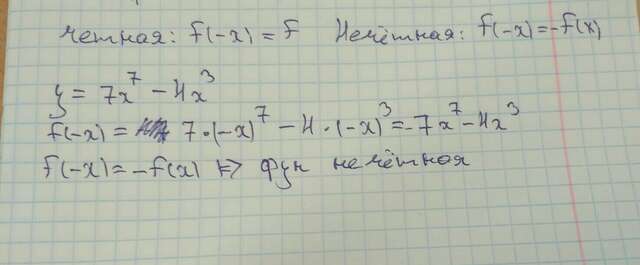 четная: f(-x) = f Нечётная: f(-x) = -f(x)
y = 7x⁷ - 4x³
f(-x) = 7·(-x)⁷ - 4·(-x)³ = -7x⁷ - 4x³
f(-x) = -f(x) => фун нечётная